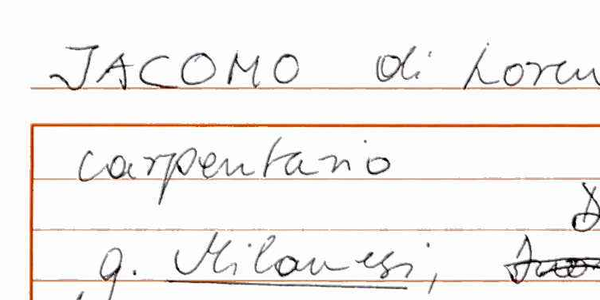 JACOMO di Loren
carpentario
g. Milanesi,